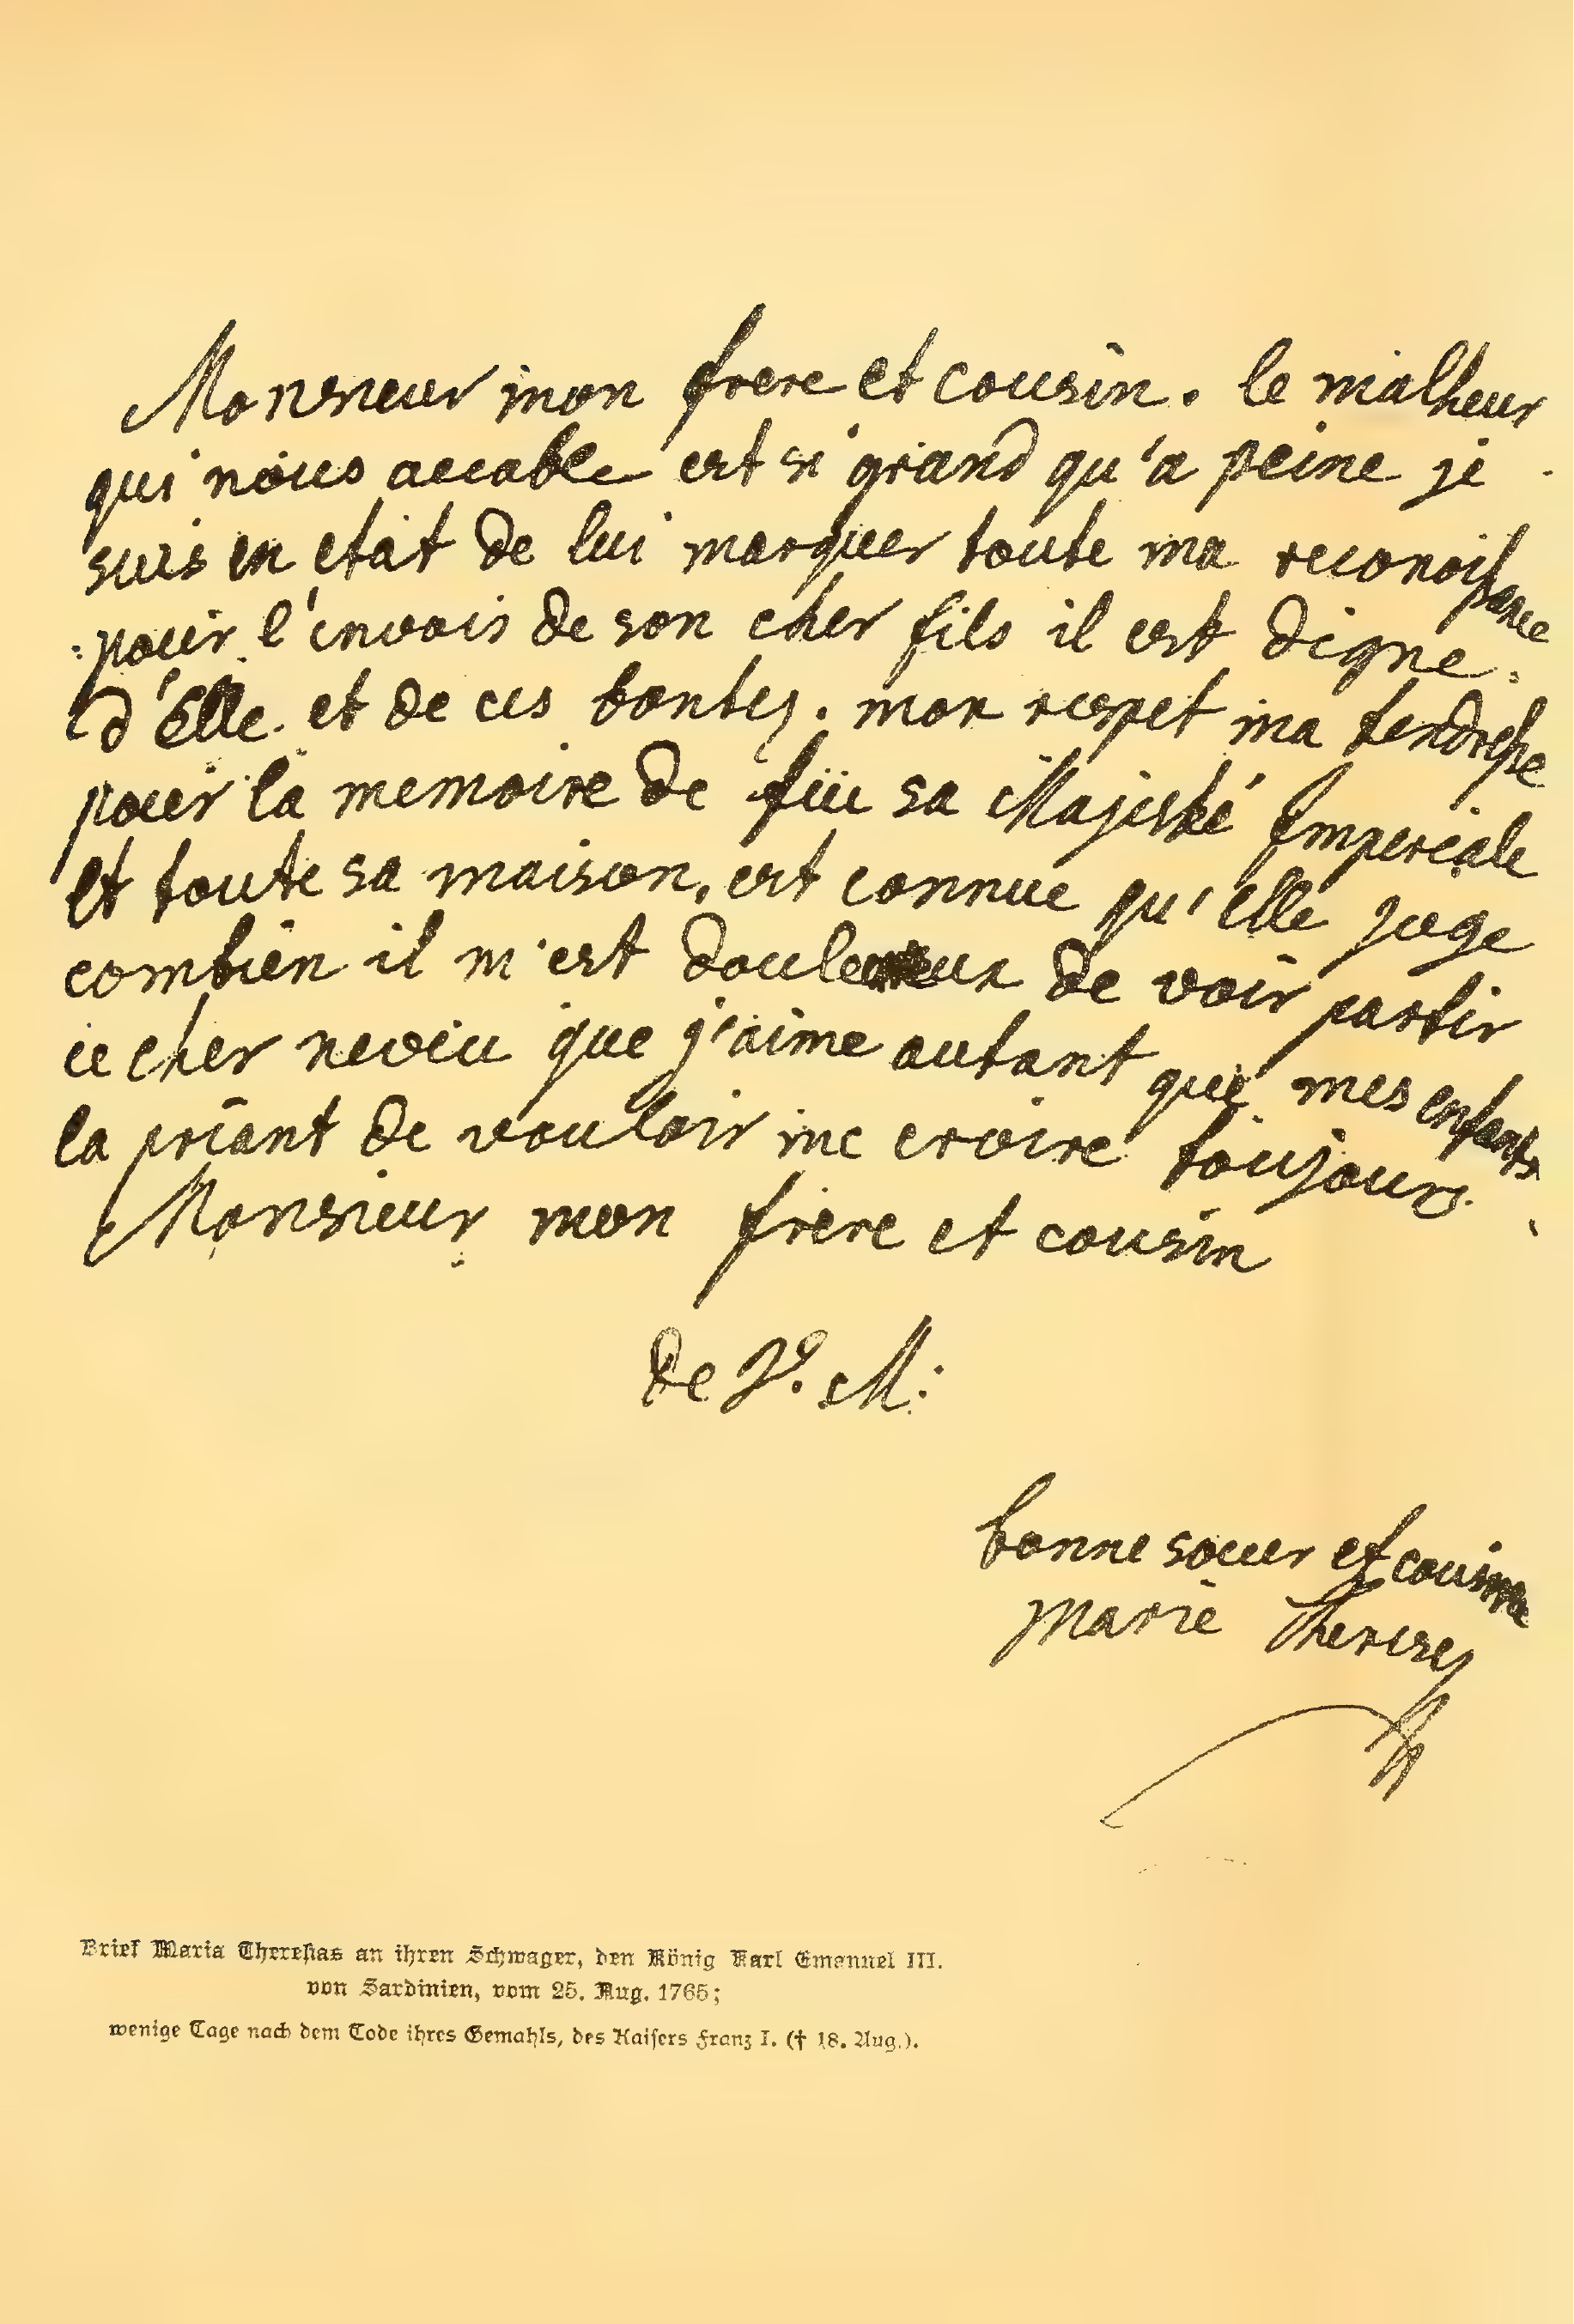 Monsieur mon frere et cousin. le malheur
qui nous accable est si grand qu'a peine je
suis en etat de lui marquer toute ma reconoissance
pour l'envois de son cher fils il est digne
d'Elle. et de ces bontes. mon respet ma tendresse
pour la memoire de füu sa Majesté Imperiale
et toute sa maison, est connue qu'elle juge
combien il m'est douleureux de voir partir
ce cher neveu que j'aime autant que mes enfants
la priant de vouloir me croire toujours
Monsieur mon frere et cousin
de V. M:
bonne soeur et cousine
Marie Therese
Brief Maria Theresias an ihren Schwager, den König Karl Emanuel III.
von Sardinien, vom 25. Aug. 1765;
wenige Tage nach dem Tode ihres Gemahls, des Kaisers Franz I. († 18. Aug.).